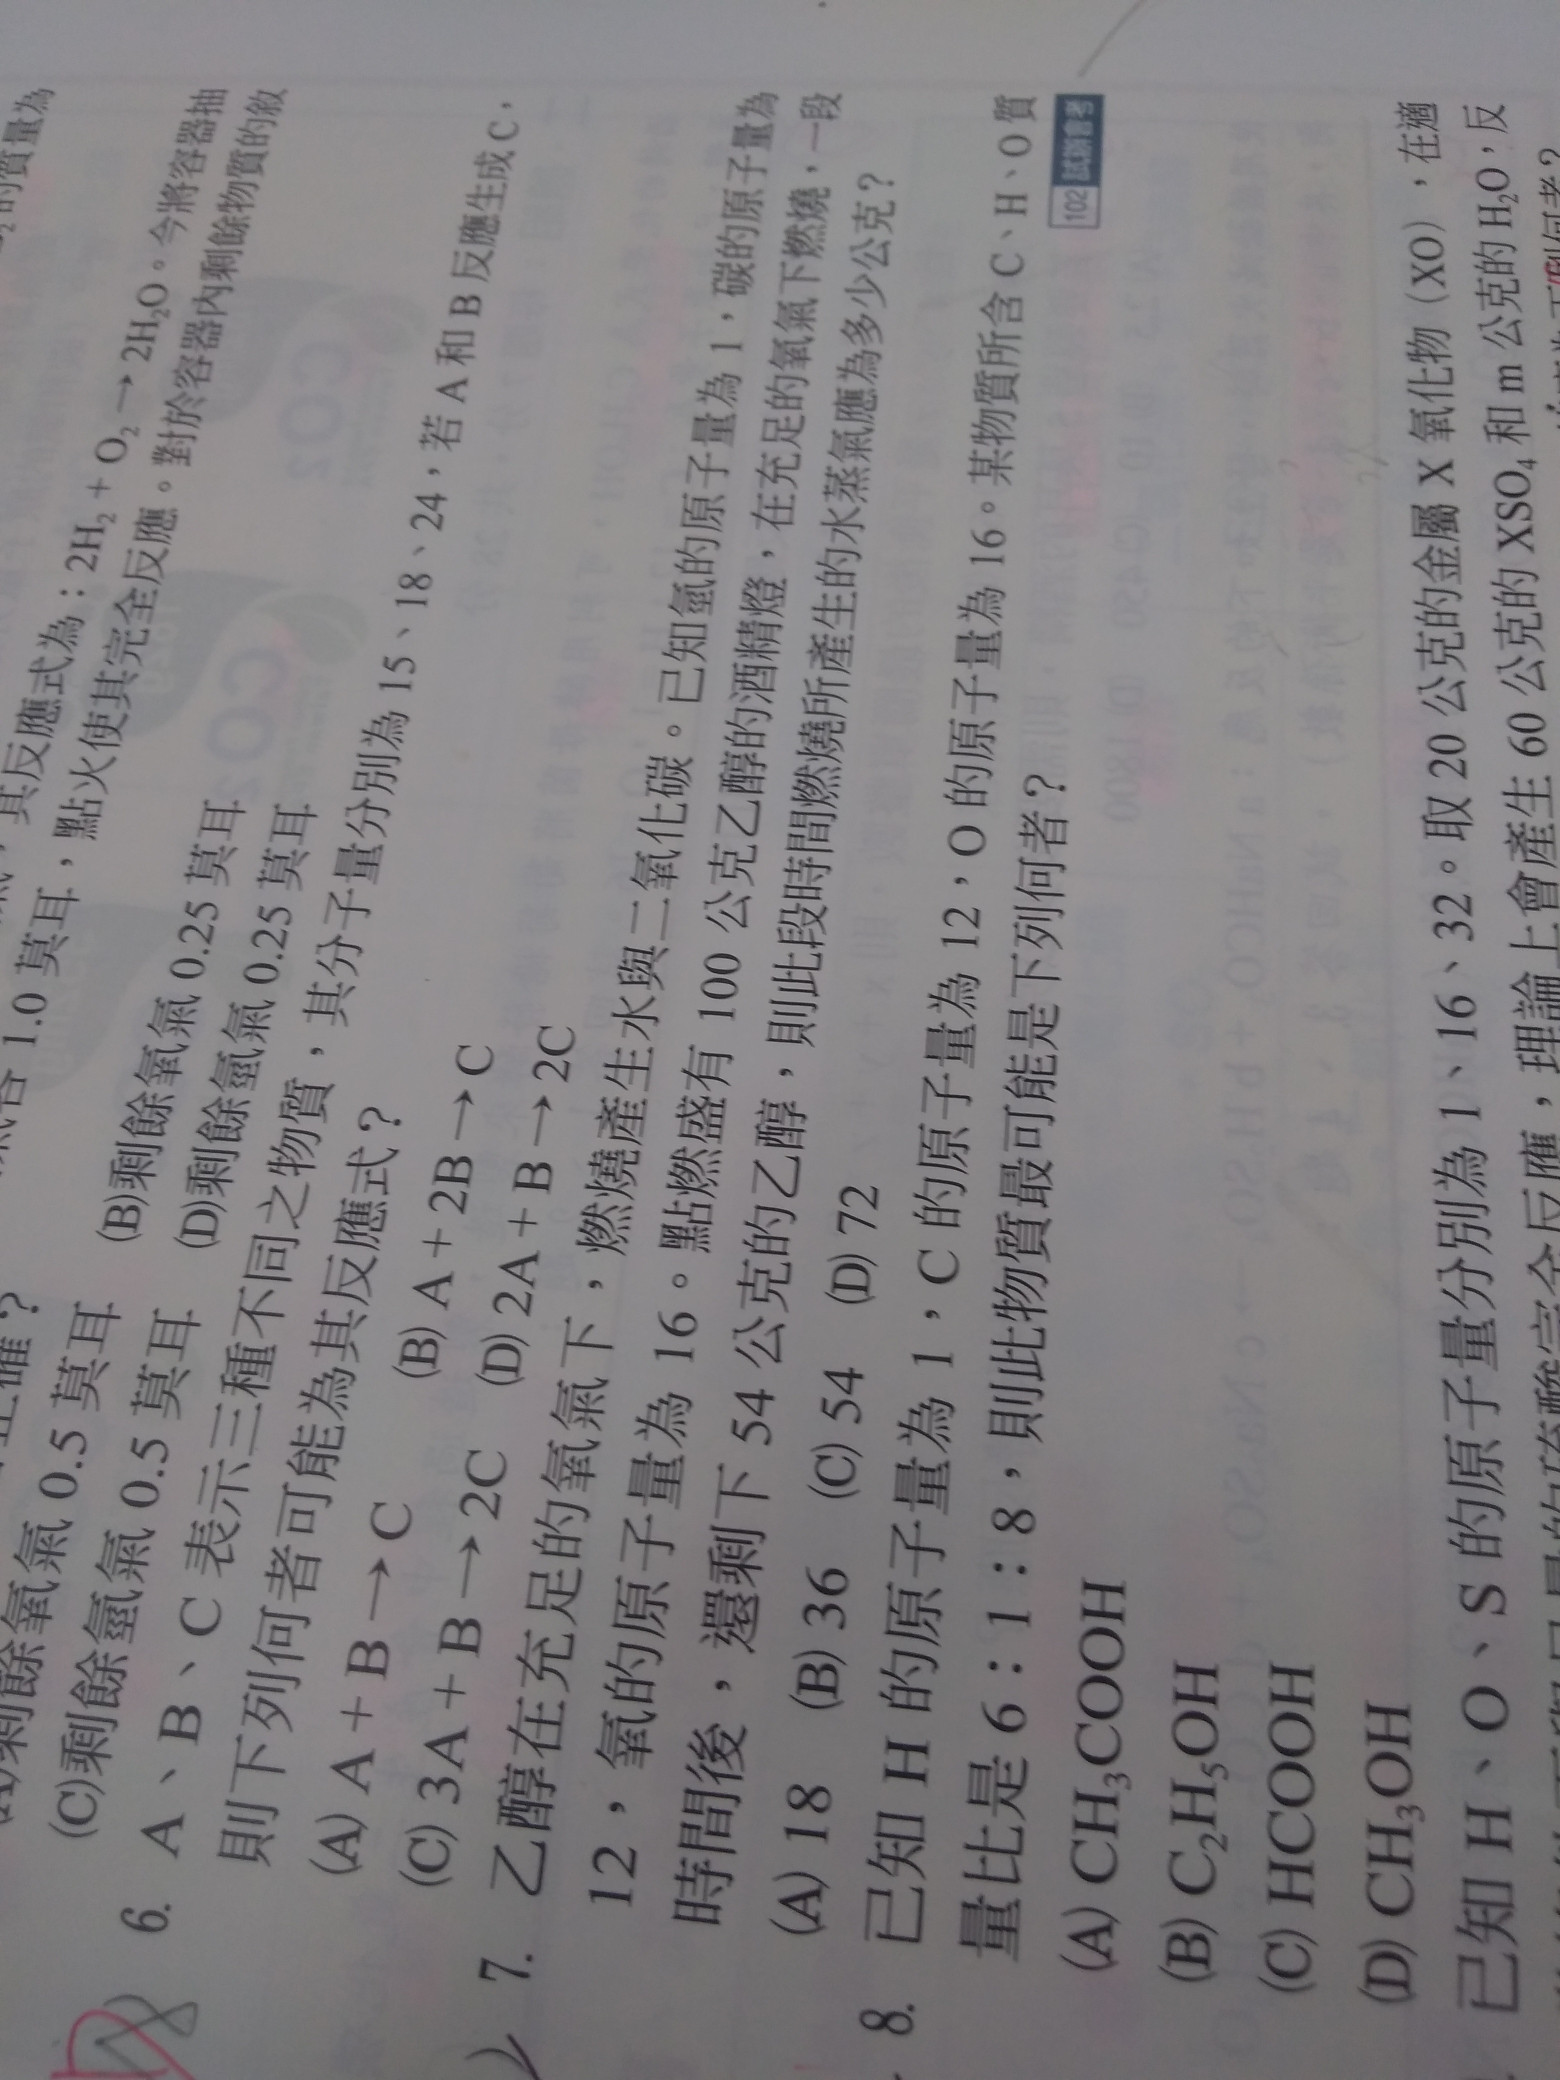 ₂的質量為
其反應式為：2H₂ + O₂ → 2H₂O。今將容器抽
1.0 莫耳，點火使其完全反應。對於容器內剩餘物質的敘
剩餘氧氣 0.5 莫耳 (B)剩餘氧氣 0.25 莫耳
(C)剩餘氫氣 0.5 莫耳 (D)剩餘氫氣 0.25 莫耳
6. A、B、C 表示三種不同之物質，其分子量分別為 15、18、24，若 A 和 B 反應生成 C，
則下列何者可能為其反應式？
(A) A + B → C (B) A + 2B → C
(C) 3A + B → 2C (D) 2A + B → 2C
7. 乙醇在充足的氧氣下，燃燒產生水與二氧化碳。已知氫的原子量為 1，碳的原子量為
12，氧的原子量為 16。點燃盛有 100 公克乙醇的酒精燈，在充足的氧氣下燃燒，一段
時間後，還剩下 54 公克的乙醇，則此段時間燃燒所產生的水蒸氣應為多少公克？
(A) 18 (B) 36 (C) 54 (D) 72
8. 已知 H 的原子量為 1，C 的原子量為 12，O 的原子量為 16。某物質所含 C、H、O 質
量比是 6：1：8，則此物質最可能是下列何者？
102 試辦會考
(A) CH₃COOH
(B) C₂H₅OH
(C) HCOOH
(D) CH₃OH
已知 H、O、S 的原子量分別為 1、16、32。取 20 公克的金屬 X 氧化物（XO），在適
全反應，理論上會產生 60 公克的 XSO₄ 和 m 公克的 H₂O，反